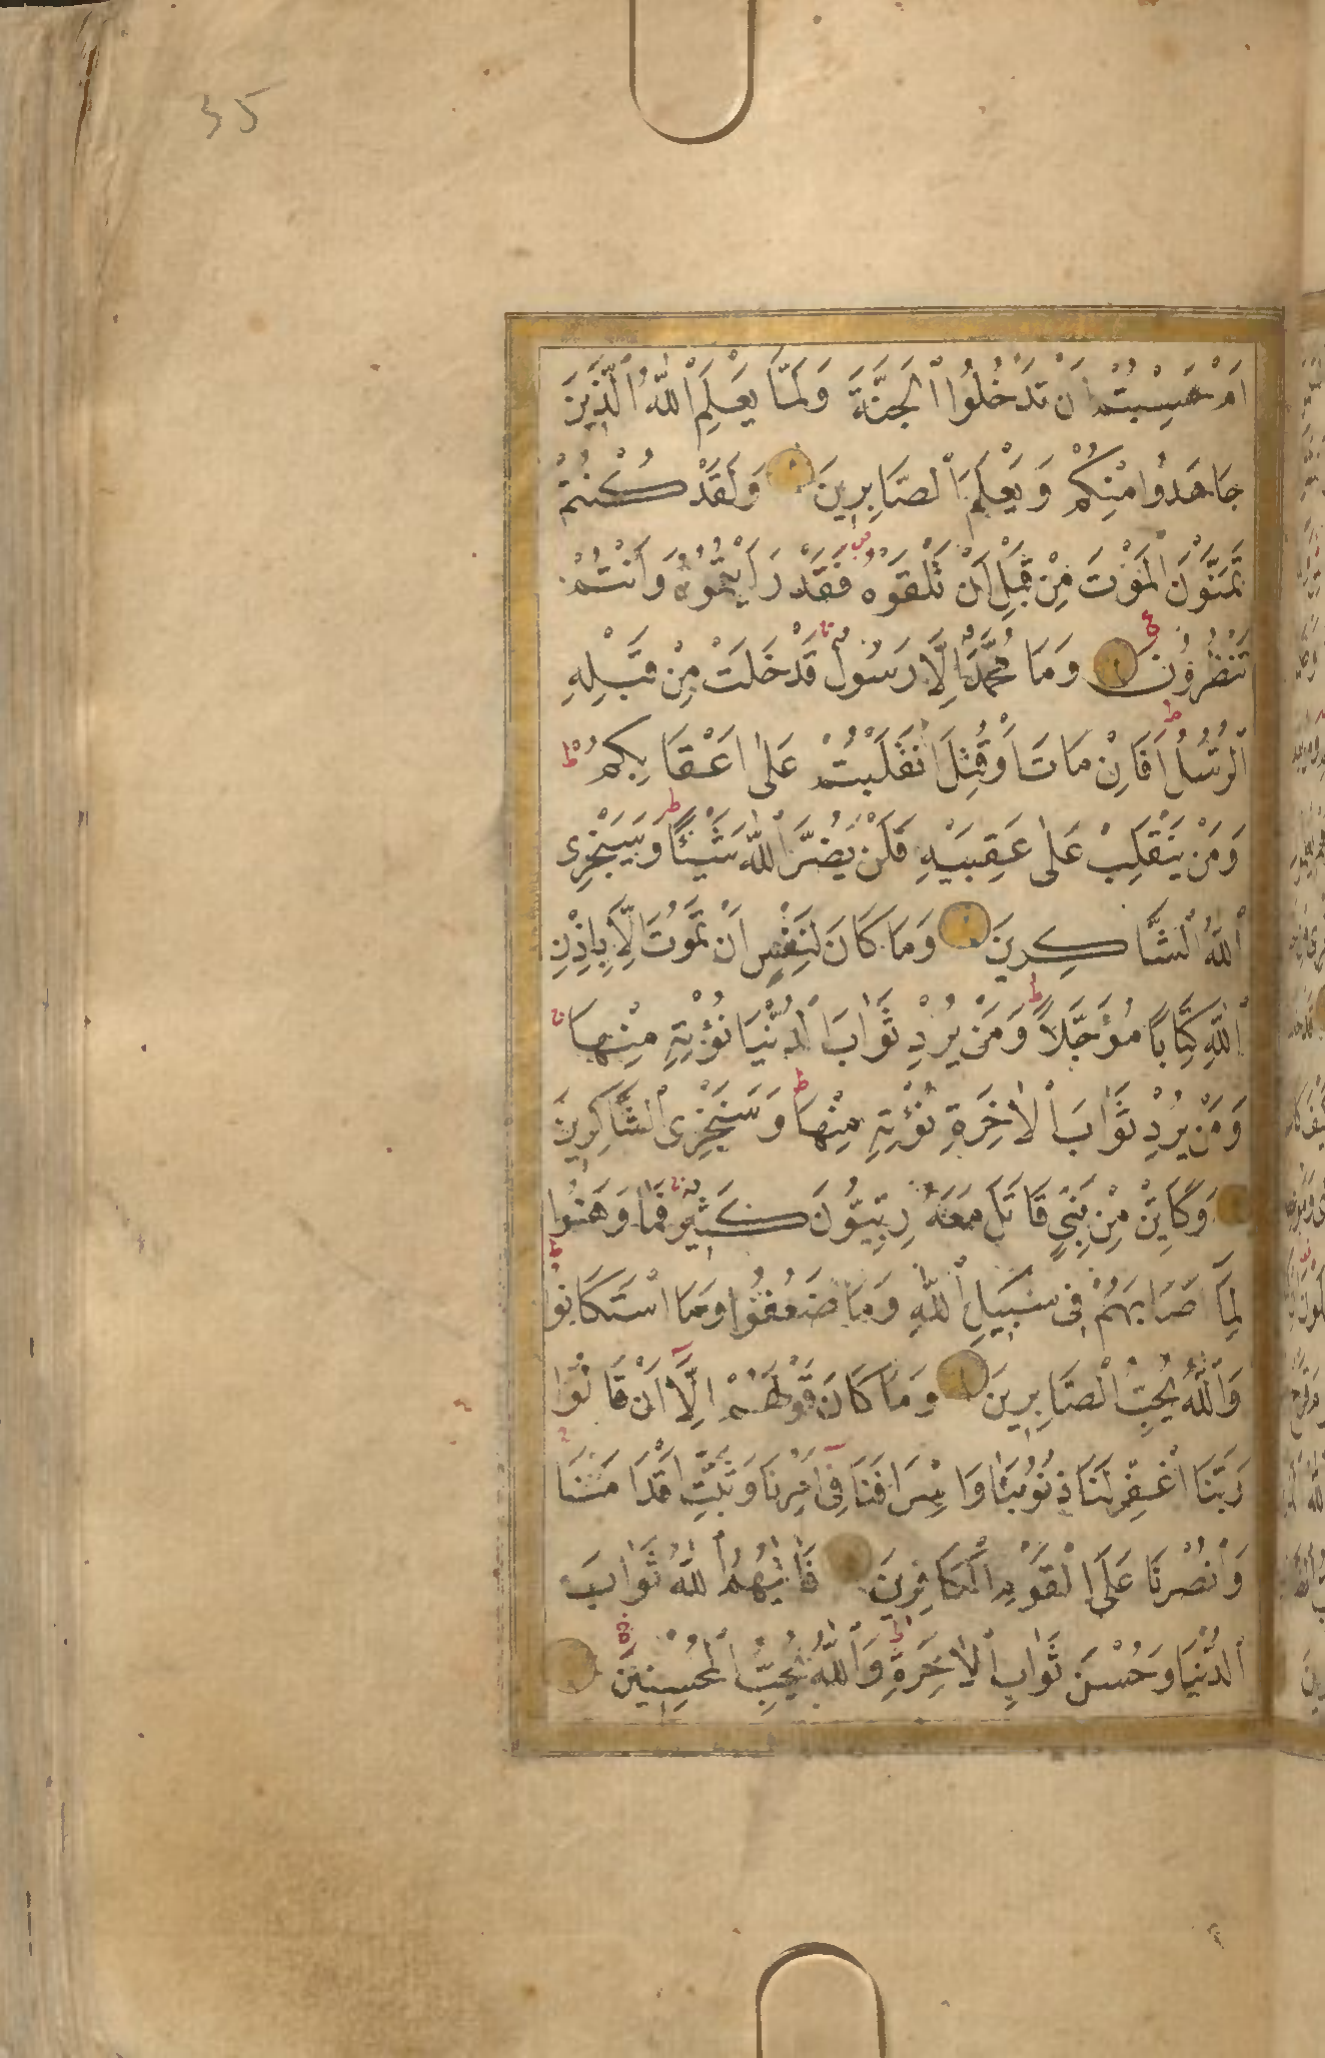 35
اَمْ حَسِبْتُمْ اَنْ تَدْخُلُوا الْجَنَّةَ وَلَمَّا يَعْلَمِ اللّٰهُ الَّذِينَ
جَاهَدُوا مِنْكُمْ وَيَعْلَمَ الصَّابِرِينَ وَلَقَدْ كُنْتُمْ
تَمَنَّوْنَ الْمَوْتَ مِنْ قَبْلِ اَنْ تَلْقَوْهُ فَقَدْ رَاَيْتُمُوهُ وَاَنْتُمْ
تَنْظُرُونَ وَمَا مُحَمَّدٌ اِلَّا رَسُولٌ قَدْ خَلَتْ مِنْ قَبْلِهِ
الرُّسُلُ ط اَفَاِنْ مَاتَ اَوْ قُتِلَ انْقَلَبْتُمْ عَلٰى اَعْقَابِكُمْ ط
وَمَنْ يَنْقَلِبْ عَلٰى عَقِبَيْهِ فَلَنْ يَضُرَّ اللّٰهَ شَيْئًا ط وَسَيَجْزِى
اللّٰهُ الشَّاكِرِينَ وَمَا كَانَ لِنَفْسٍ اَنْ تَمُوتَ اِلَّا بِاِذْنِ
اللّٰهِ كِتَابًا مُؤَجَّلًا ط وَمَنْ يُرِدْ ثَوَابَ الدُّنْيَا نُؤْتِهِ مِنْهَا
وَمَنْ يُرِدْ ثَوَابَ الْاٰخِرَةِ نُؤْتِهِ مِنْهَا ط وَسَنَجْزِى الشَّاكِرِينَ
وَكَاَيِّنْ مِنْ نَبِىٍّ قَاتَلَ مَعَهُ رِبِّيُّونَ كَثِيرٌ فَمَا وَهَنُوا
لِمَا اَصَابَهُمْ فِى سَبِيلِ اللّٰهِ وَمَا ضَعُفُوا وَمَا اسْتَكَانُوا ط
وَاللّٰهُ يُحِبُّ الصَّابِرِينَ وَمَا كَانَ قَوْلَهُمْ اِلَّا اَنْ قَالُوا
رَبَّنَا اغْفِرْ لَنَا ذُنُوبَنَا وَاِسْرَافَنَا فِى اَمْرِنَا وَثَبِّتْ اَقْدَامَنَا
وَانْصُرْنَا عَلَى الْقَوْمِ الْكَافِرِينَ فَاٰتٰيهُمُ اللّٰهُ ثَوَابَ
الدُّنْيَا وَحُسْنَ ثَوَابِ الْاٰخِرَةِ ط وَاللّٰهُ يُحِبُّ الْمُحْسِنِينَ